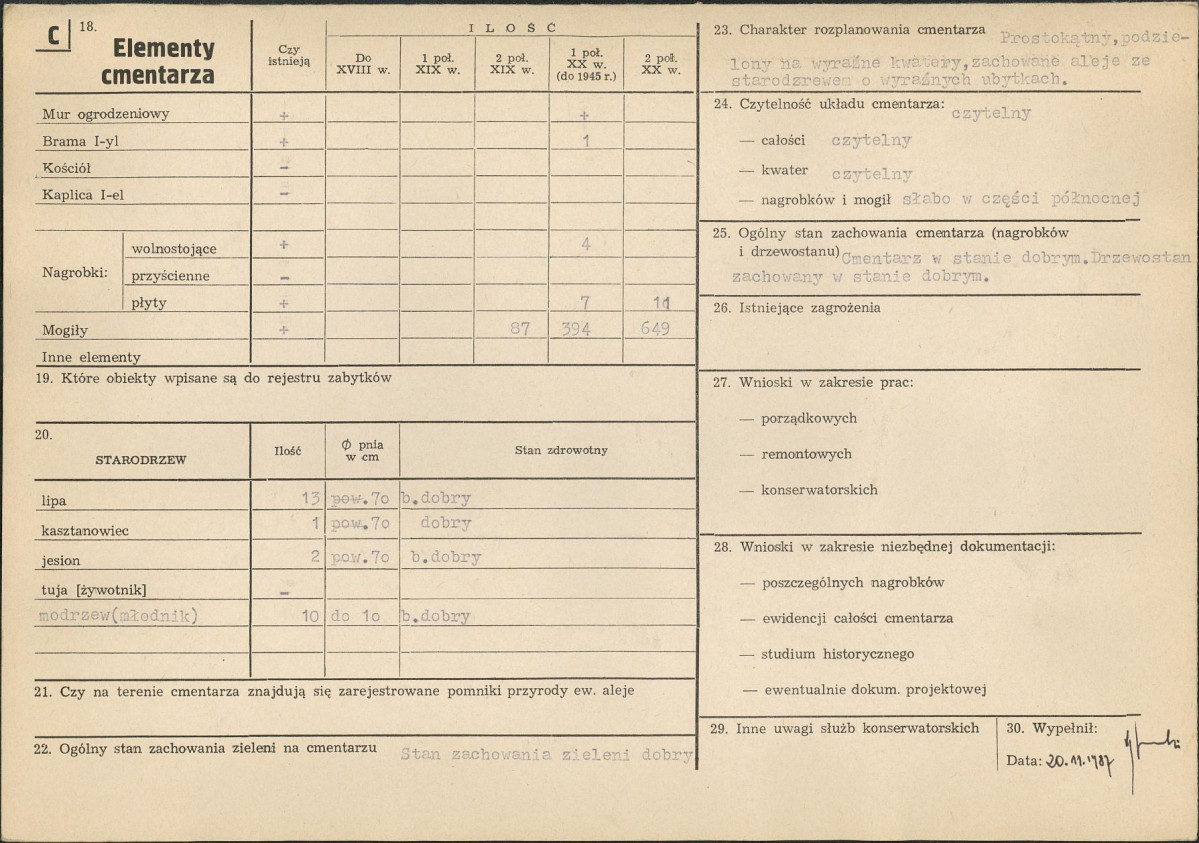 C 18. Elementy cmentarza
Czy istnieją
I L O Ś Ć
Do XVIII w.
1 poł. XIX w.
2 poł. XIX w.
1 poł. XX w. (do 1945 r.)
2 poł. XX w.
Mur ogrodzeniowy + +
Brama I-yl + 1
Kościół -
Kaplica I-el -
Nagrobki:
wolnostojące + 4
przyścienne -
płyty + 7 11
Mogiły + 87 394 649
Inne elementy
19. Które obiekty wpisane są do rejestru zabytków
20. STARODRZEW
Ilość
Φ pnia w cm
Stan zdrowotny
lipa 13 pow.7o b.dobry
kasztanowiec 1 pow.7o dobry
jesion 2 pow.7o b.dobry
tuja [żywotnik] -
modrzew(młodnik) 10 do 1o b.dobry
21. Czy na terenie cmentarza znajdują się zarejestrowane pomniki przyrody ew. aleje
22. Ogólny stan zachowania zieleni na cmentarzu Stan zachowania zieleni dobry
23. Charakter rozplanowania cmentarza Prostokątny,podzie-
lony na wyraźne kwatery,zachowane aleje ze
starodrzewem o wyraźnych ubytkach.
24. Czytelność układu cmentarza: czytelny
— całości czytelny
— kwater czytelny
— nagrobków i mogił słabo w części północnej
25. Ogólny stan zachowania cmentarza (nagrobków
i drzewostanu) Cmentarz w stanie dobrym.Drzewostan
zachowany w stanie dobrym.
26. Istniejące zagrożenia
27. Wnioski w zakresie prac:
— porządkowych
— remontowych
— konserwatorskich
28. Wnioski w zakresie niezbędnej dokumentacji:
— poszczególnych nagrobków
— ewidencji całości cmentarza
— studium historycznego
— ewentualnie dokum. projektowej
29. Inne uwagi służb konserwatorskich
30. Wypełnił:
Data: 20.11.1987